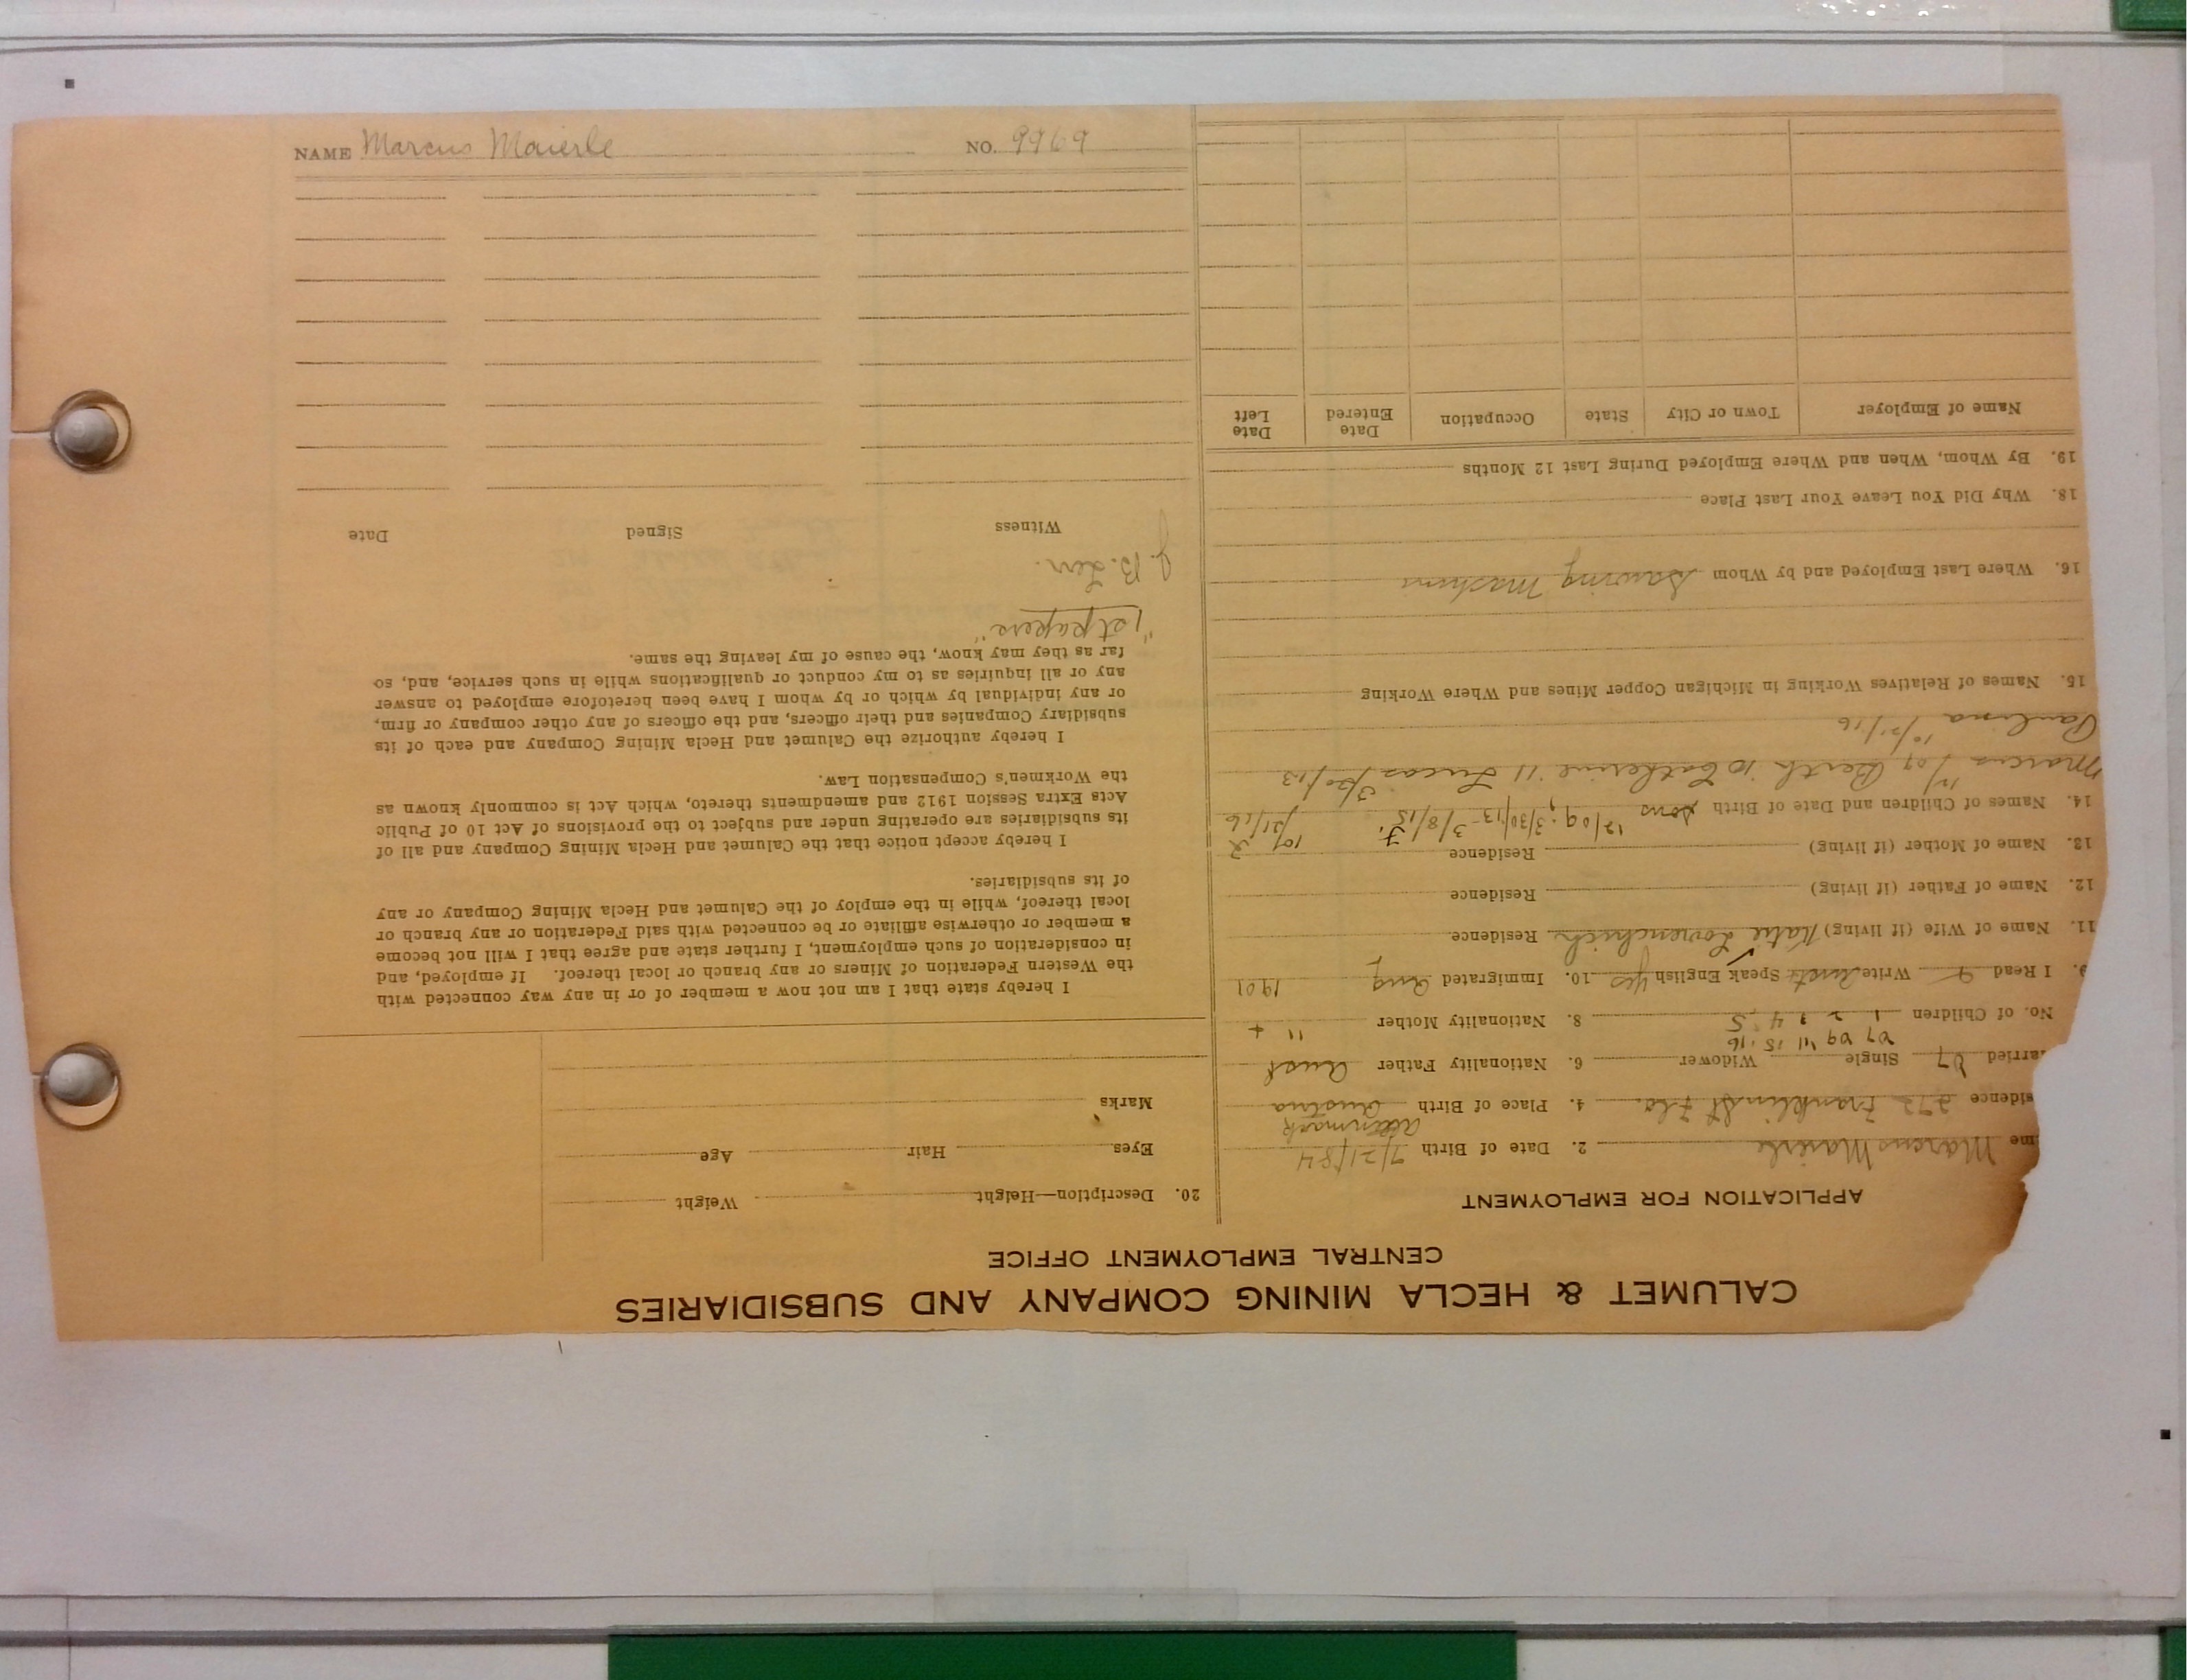 CALUMET & HECLA MINING COMPANY AND SUBSIDIARIES
CENTRAL EMPLOYMENT OFFICE
APPLICATION FOR EMPLOYMENT
me Marcus Maierle 2. Date of Birth 7/21/84
sidence 272 Franklin St Flo. 4. Place of Birth Austria
arried 07 Single Widower 6. Nationality Father Aust
07 09 11 15 16
No. of Children 1 2 3 4 5 8. Nationality Mother " +
9. I Read Write Speak English yes 10. Immigrated Aug 1901
11. Name of Wife (if living) Katie Residence
12. Name of Father (if living) Residence
13. Name of Mother (if living) Residence
14. Names of Children and Date of Birth Sons 12/09; 3/30/13 - 3/8/15 10/21/16
Marcus 12/09 Berth 10 Catherine 11 Lucas 3/30/13
Paulina 10/21/16
15. Names of Relatives Working in Michigan Copper Mines and Where Working
16. Where Last Employed and by Whom
18. Why Did You Leave Your Last Place
19. By Whom, When and Where Employed During Last 12 Months
Name of Employer Town or City State Occupation Date Entered Date Left
20. Description—Height Weight
Eyes Hair Age
Marks
I hereby state that I am not now a member of or in any way connected with
the Western Federation of Miners or any branch or local thereof. If employed, and
in consideration of such employment, I further state and agree that I will not become
a member or otherwise affiliate or be connected with said Federation or any branch or
local thereof, while in the employ of the Calumet and Hecla Mining Company or any
of its subsidiaries.
I hereby accept notice that the Calumet and Hecla Mining Company and all of
its subsidiaries are operating under and subject to the provisions of Act 10 of Public
Acts Extra Session 1912 and amendments thereto, which Act is commonly known as
the Workmen's Compensation Law.
I hereby authorize the Calumet and Hecla Mining Company and each of its
subsidiary Companies and their officers, and the officers of any other company or firm,
or any individual by which or by whom I have been heretofore employed to answer
any or all inquiries as to my conduct or qualifications while in such service, and, so
far as they may know, the cause of my leaving the same.
"1st papers"
J. B.
Witness Signed Date
NAME Marcus Maierle NO. 9969